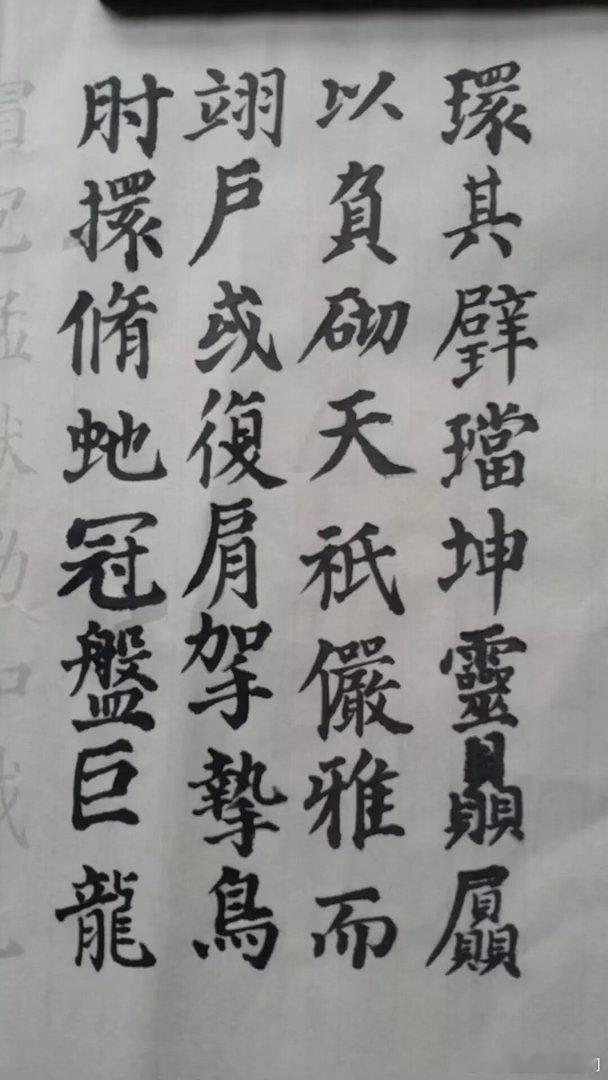 環其璧璫坤靈贔屭
以負砌天祇儼雅而
翊户或復肩挐摯鳥
肘擐脩虵冠盤巨龍